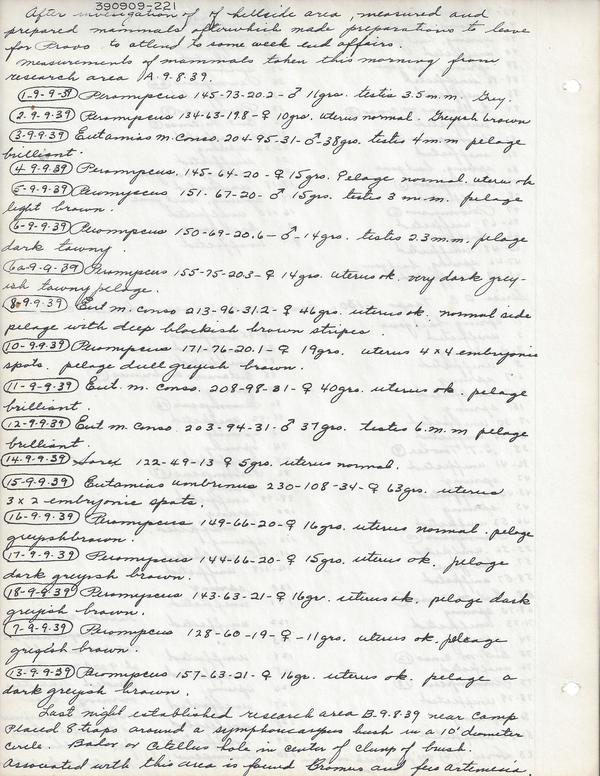 390909-221
After investigation of of hillside area, measured and
prepared mammals afterwhich made preparations to leave
for Provo to attend to some week end affairs.
measurements of mammals taken this morning from
research area A.9.8.39.
1-9-9-39 Peromyscus 145-73-20.2-♂ 11grs. testis 3.5 m.m. Grey.
2.9-9.39 Peromyscus 134-63-19.8-♀ 10grs. uterus normal. Greyish brown
3-9.9.39 Eutamias m. Conso. 204-95-31-♂-38grs. testes 4m.m pelage
brilliant.
4-9.9.39 Peromyscus. 145-64-20-♀ 15grs. Pelage normal. uterus ok
5-9.9.39 Peromyscus 151-67-20-♂ 15grs. testis 3 m.m. pelage
light brown.
6-9-9.39 Peromyscus 150-69-20.6-♂-14grs. testis 2.3 m.m. pelage
dark tawny.
6a-9-9.39 Peromyscus 155-75-20.3-♀ 14grs. uterus ok. very dark grey-
ish tawny pelage.
8-9.9.39 Eut m. conso 213-96-31.2-♀ 46grs. uterus ok. normal side
pelage with deep blackish brown stripes.
10-9.9.39 Peromyscus 171-76-20.1-♀ 19grs. uterus 4x4 embryonic
spots. pelage dull greyish brown.
11-9-9.39 Eut. m. conso. 208-98-31-♀ 40grs. uterus ok. pelage
brilliant.
12-9.9.39 Eut m. conso. 203-94-31-♂ 37grs. testes 6.m.m pelage
brilliant.
14.9.9.39 Sorex 122-49-13 ♀ 5grs. uterus normal.
15-9.9.39 Eutamias umbrinus 230-108-34-♀ 63grs. uterus
3x2-embryonic spots.
16-9.9.39 Peromyscus 149-66-20-♀ 16grs. uterus normal. pelage
greyishbrown.
17-9.9.39 Peromyscus 144-66-20-♀ 15grs. uterus ok. pelage
dark greyish brown.
18-9.9.39 Peromyscus 143-63-21-♀ 16gr. uterus ok. pelage dark
greyish brown.
7-9-9.39 Peromyscus 128-60-19-♀-11grs. uterus ok. pelage
greyish brown.
13-9.9.39 Peromyscus 157-63-21-♀ 16gr. uterus ok. pelage a
dark greyish brown.
Last night established research area B-9.8.39 near camp
Placed 8 traps around a symphoricarpus bush in a 10' diameter
circle. Bador or Citellus hole in center of clump of brush.
Associated with this area is found Bromus and few artemisia.